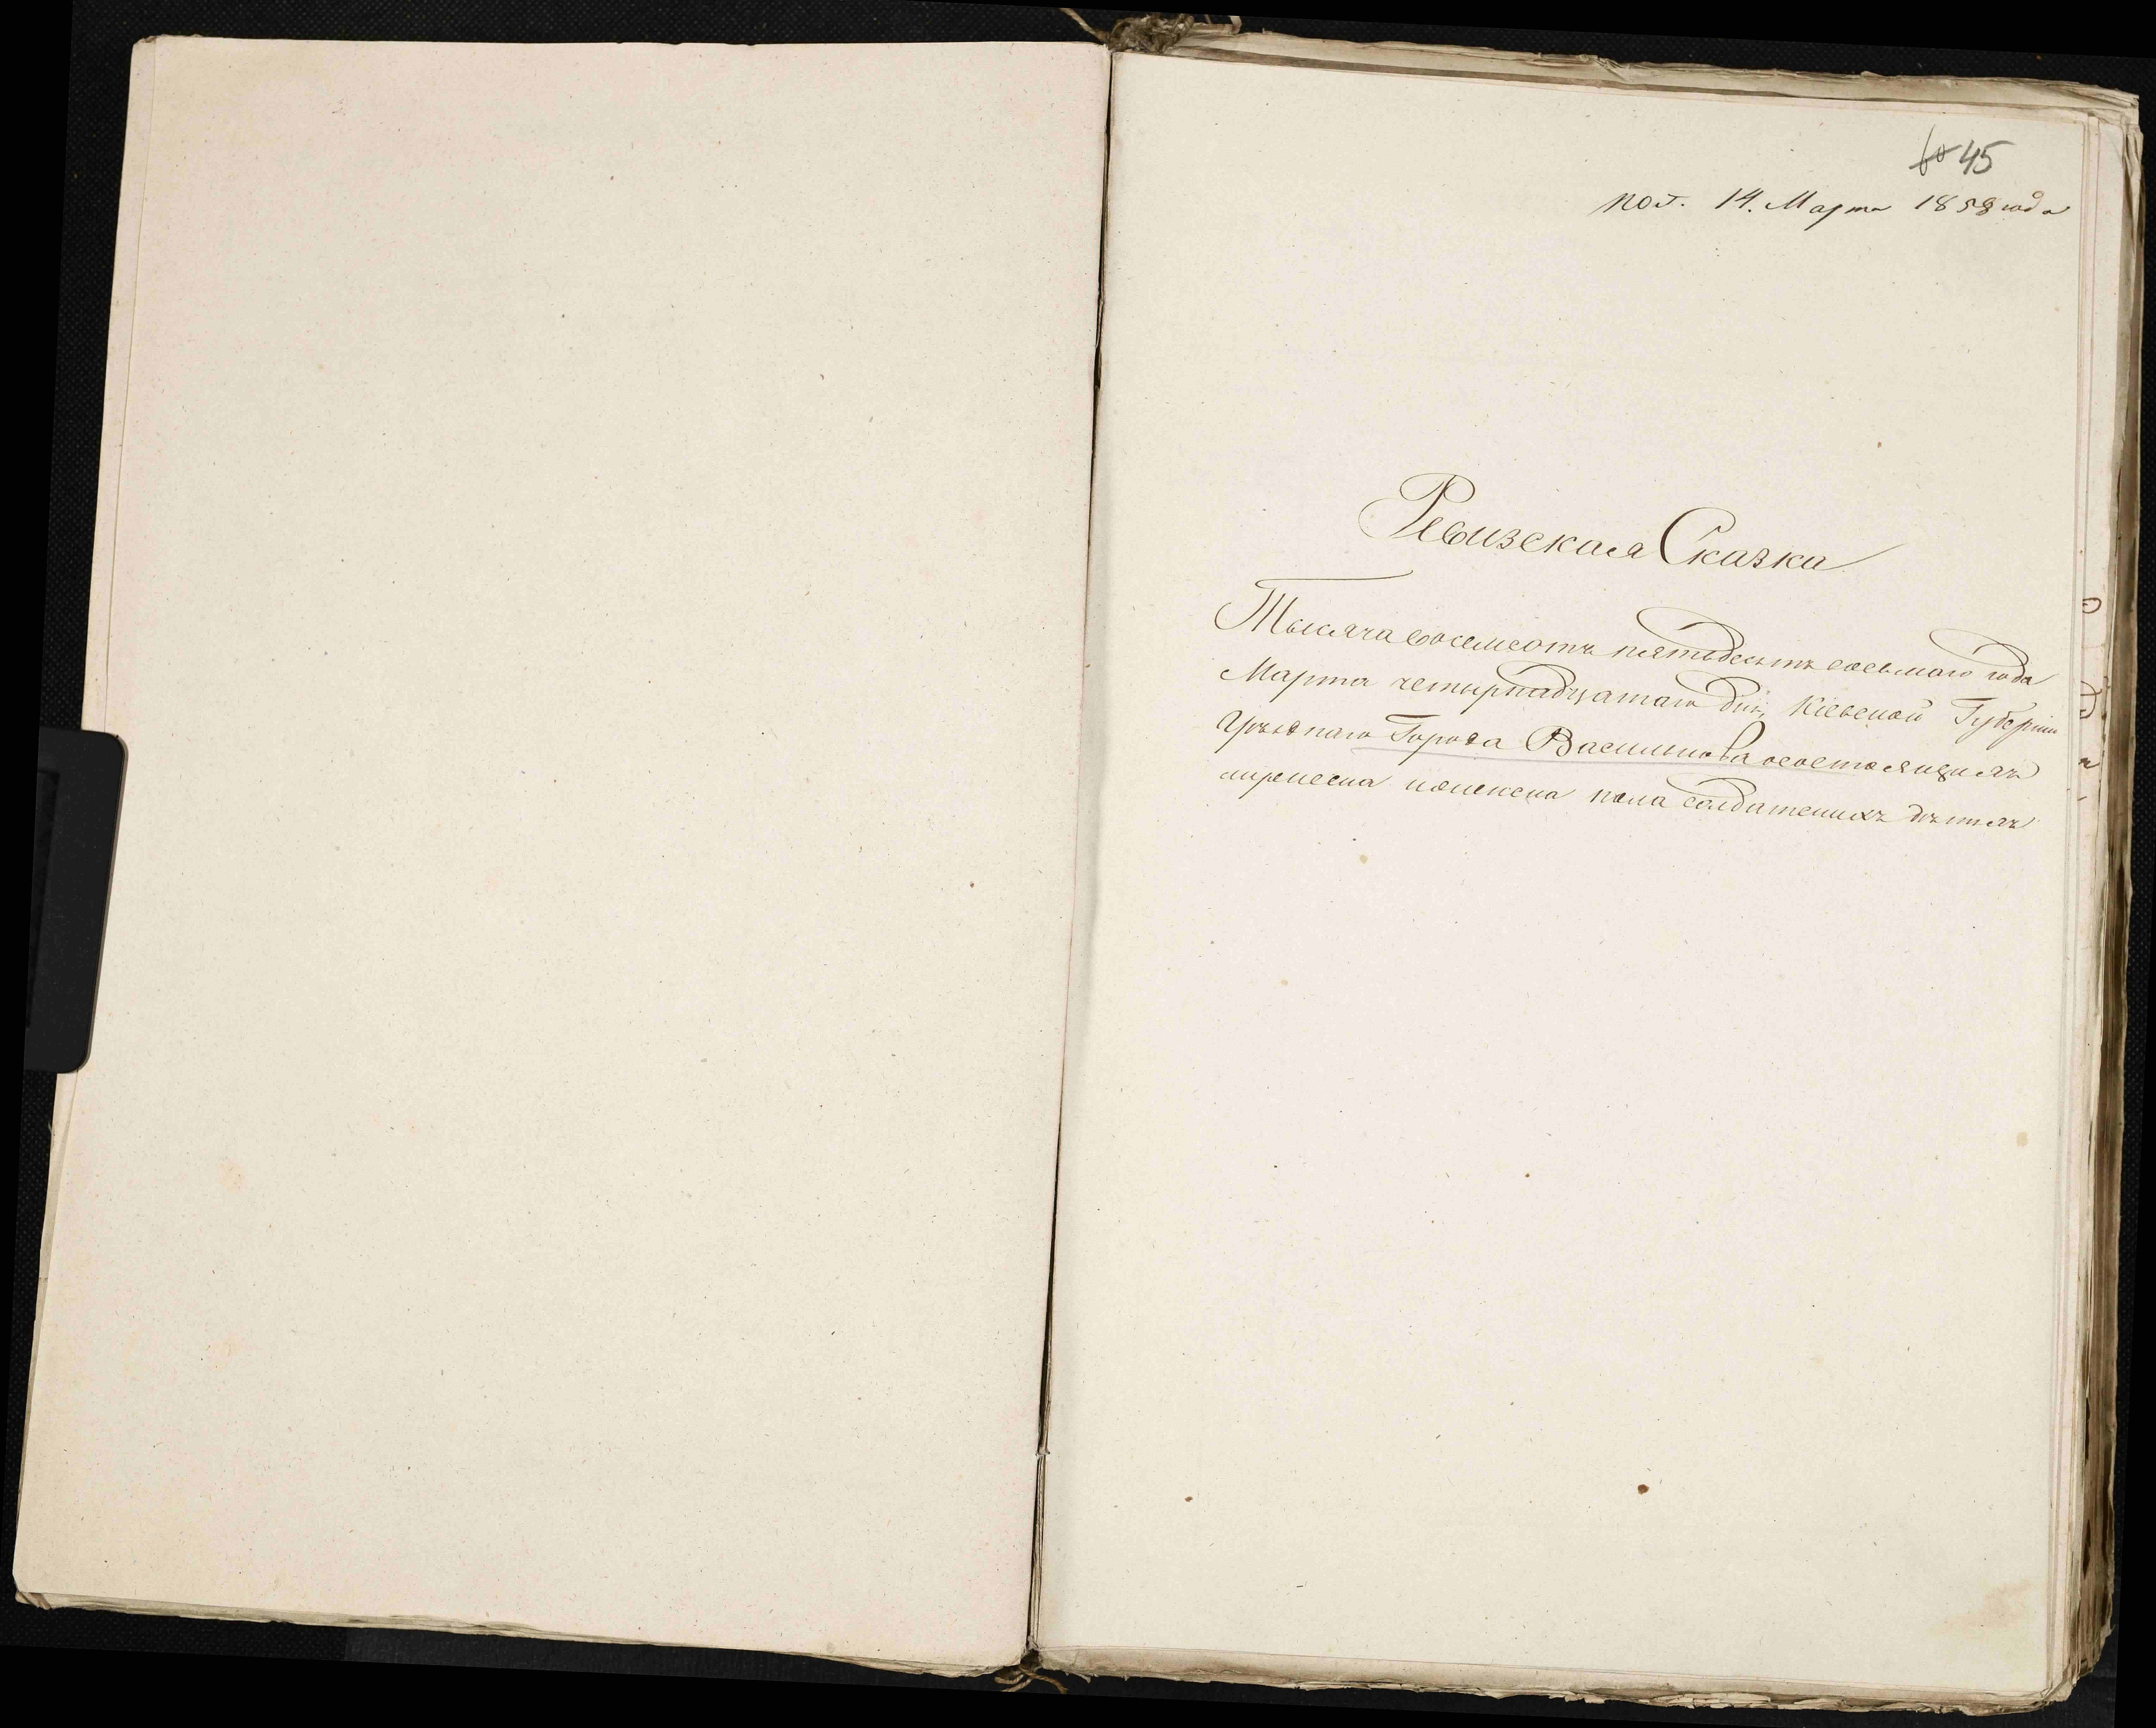 45
пол. 14. Марта 1858 года
Ревизская Сказка
Тысяча восемсотъ пятьдесятъ восьмаго года
Марта четырнадцатаго дня, Кіевской Губерніи
Города Василькова о состоящихъ
пола солдатскихъ дѣтяхъ